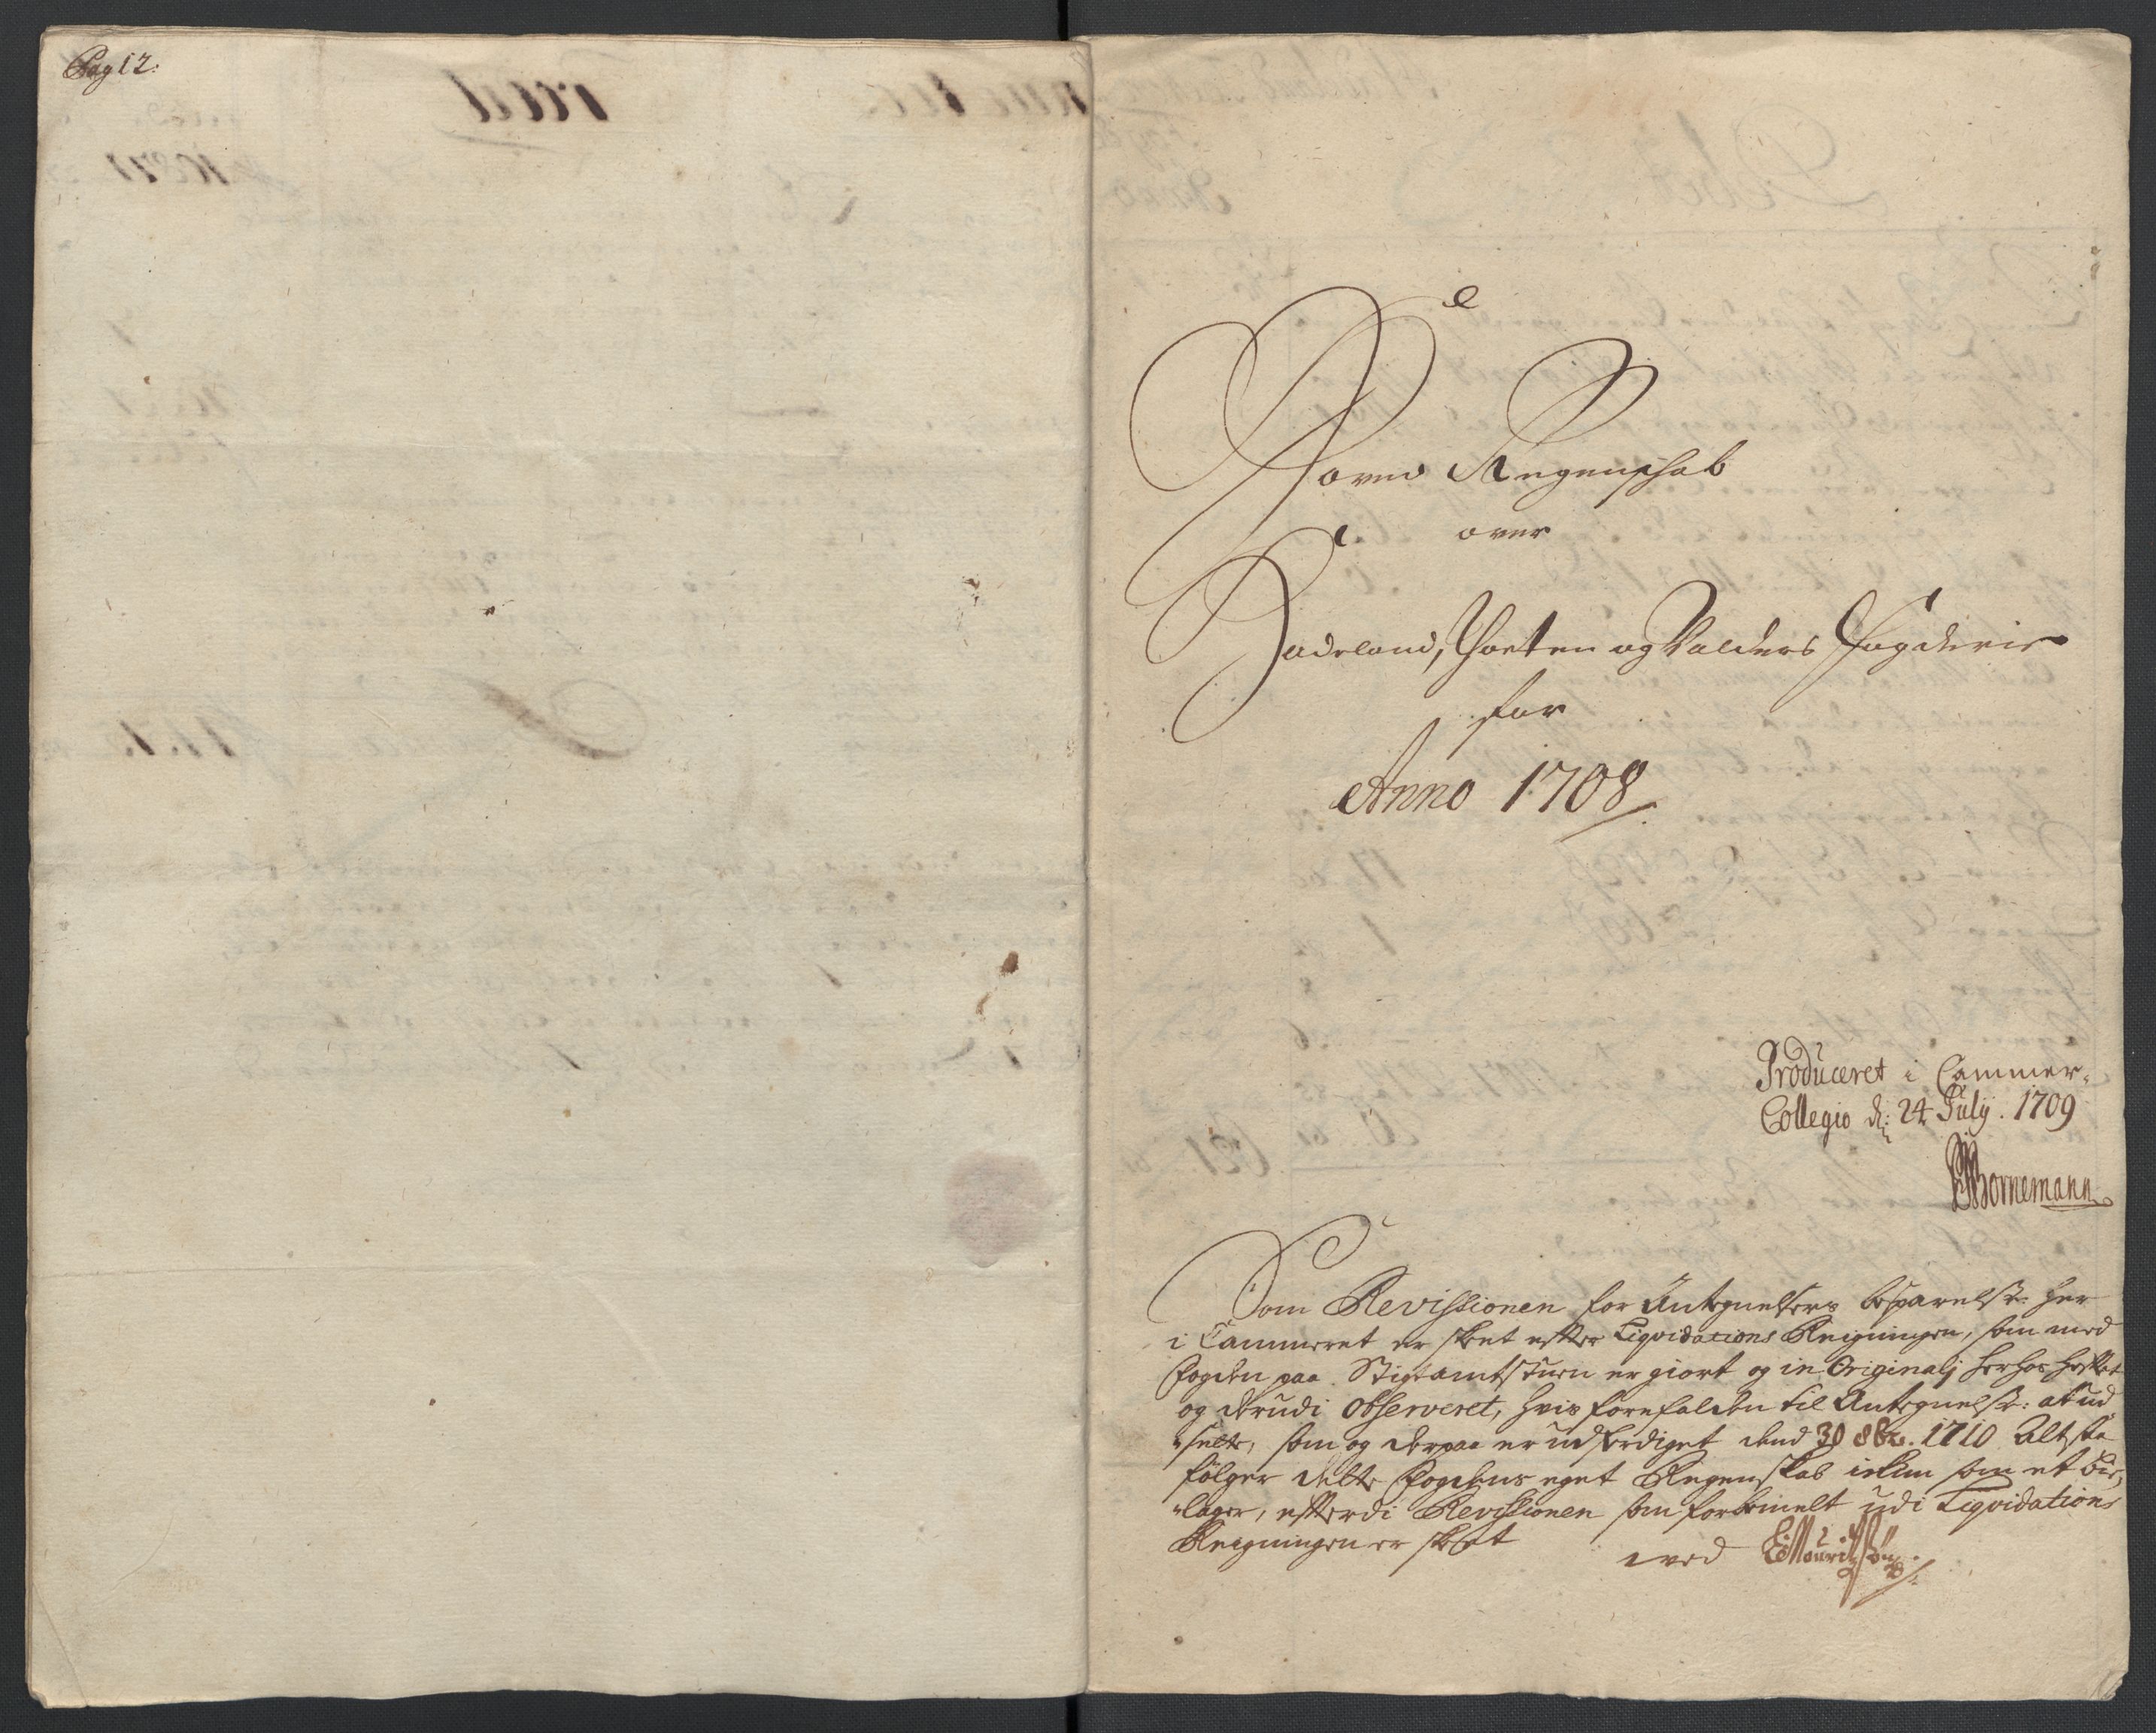 Pag 12:
Hoved Regenschab
over
Hadeland, Thoten og Valders Fogderie
for
Anno 1708
Produceret i Cammer-
Collegio d: 24 July. 1709
Bornemann
Som Revissionen for Antegnelsers besparelse: her
i Cammeret er skeet efter Liqvidations Reigningen, som med
Fogden paa Stigtamtstuen er giort og in Originalj herhos heftet
og derudi observeret, hvis forefalden til Antegnelse: at ud
selte, som og derpaa er udferdiget dend 30 8br. 1710 Altsaa
følger dette Fogdens eget Regenskab ickun som et bie,
lager, efterdi Revissionen som forbemelt udi Liqvidations
Reigningen er skeet
ved EMouritzsøn